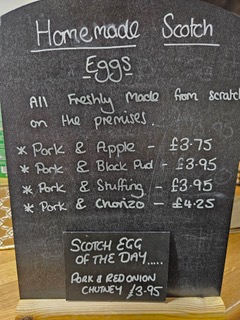 Homemade Scotch
Eggs
All Freshly Made from scratch
on the premises.
* Pork & Apple - £3.75
* Pork & Black Pud - £3.95
* Pork & Stuffing - £3.95
* Pork & Chorizo - £4.25
SCOTCH EGG
OF THE DAY.....
PORK & RED ONION
CHUTNEY £3.95